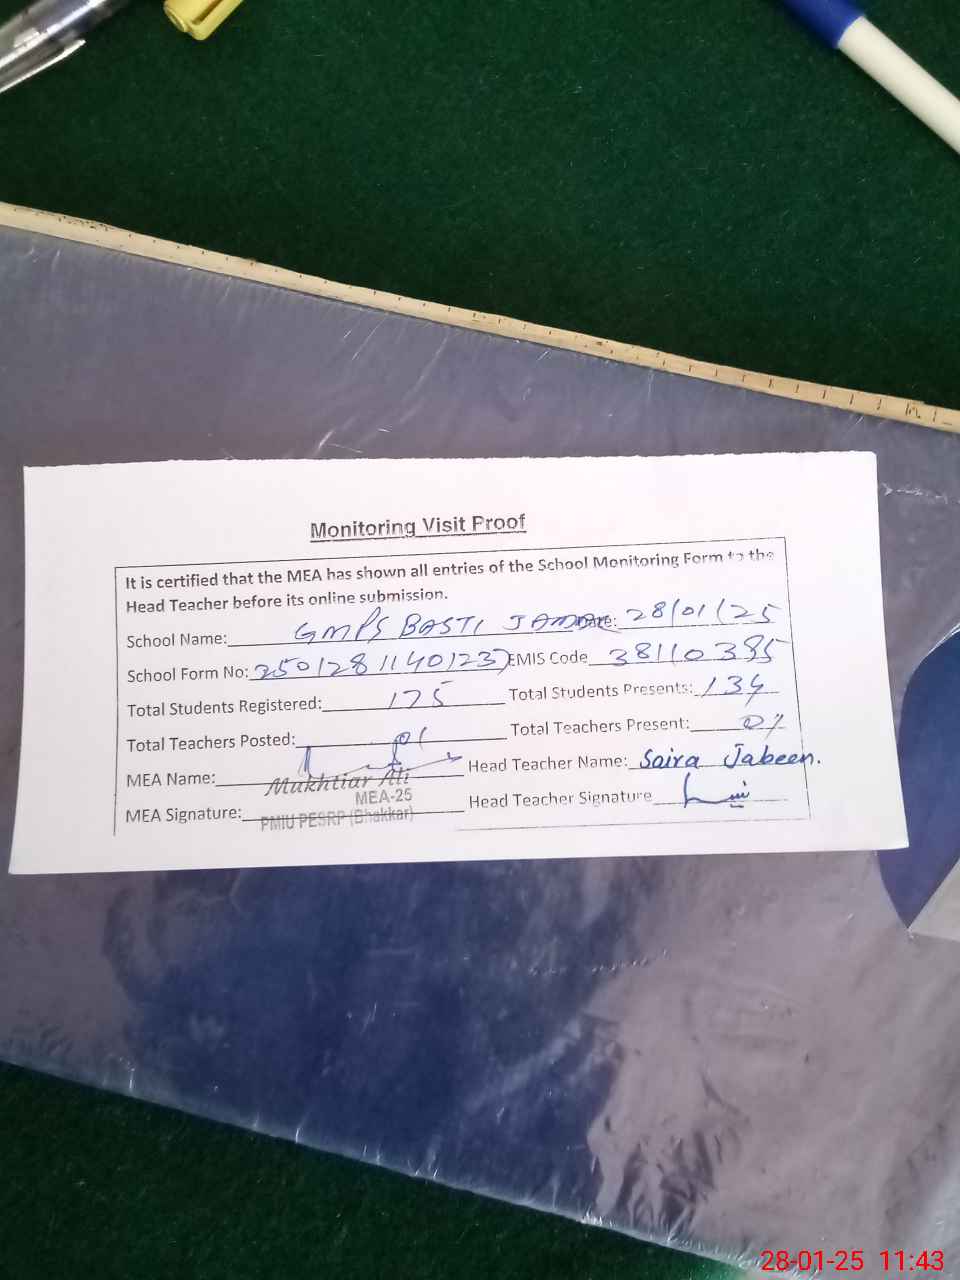 Monitoring Visit Proof
It is certified that the MEA has shown all entries of the School Monitoring Form to the
Head Teacher before its online submission.
School Name: GMPS BASTI Date: 28/01/25
School Form No: 25012811401237 EMIS Code 38110385
Total Students Registered: 175 Total Students Presents: 134
Total Teachers Posted: 01 Total Teachers Present: 01
MEA Name: Mukhtiar Ali Head Teacher Name: Saira Jabeen.
MEA-25
MEA Signature: Head Teacher Signature
PMIU PESRP (Bhakkar)
28-01-25 11:43